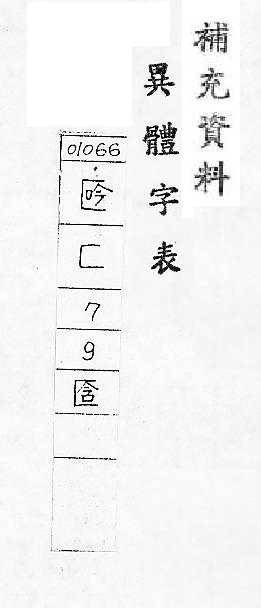 補充資料
異體字表
01066
匚
7
9